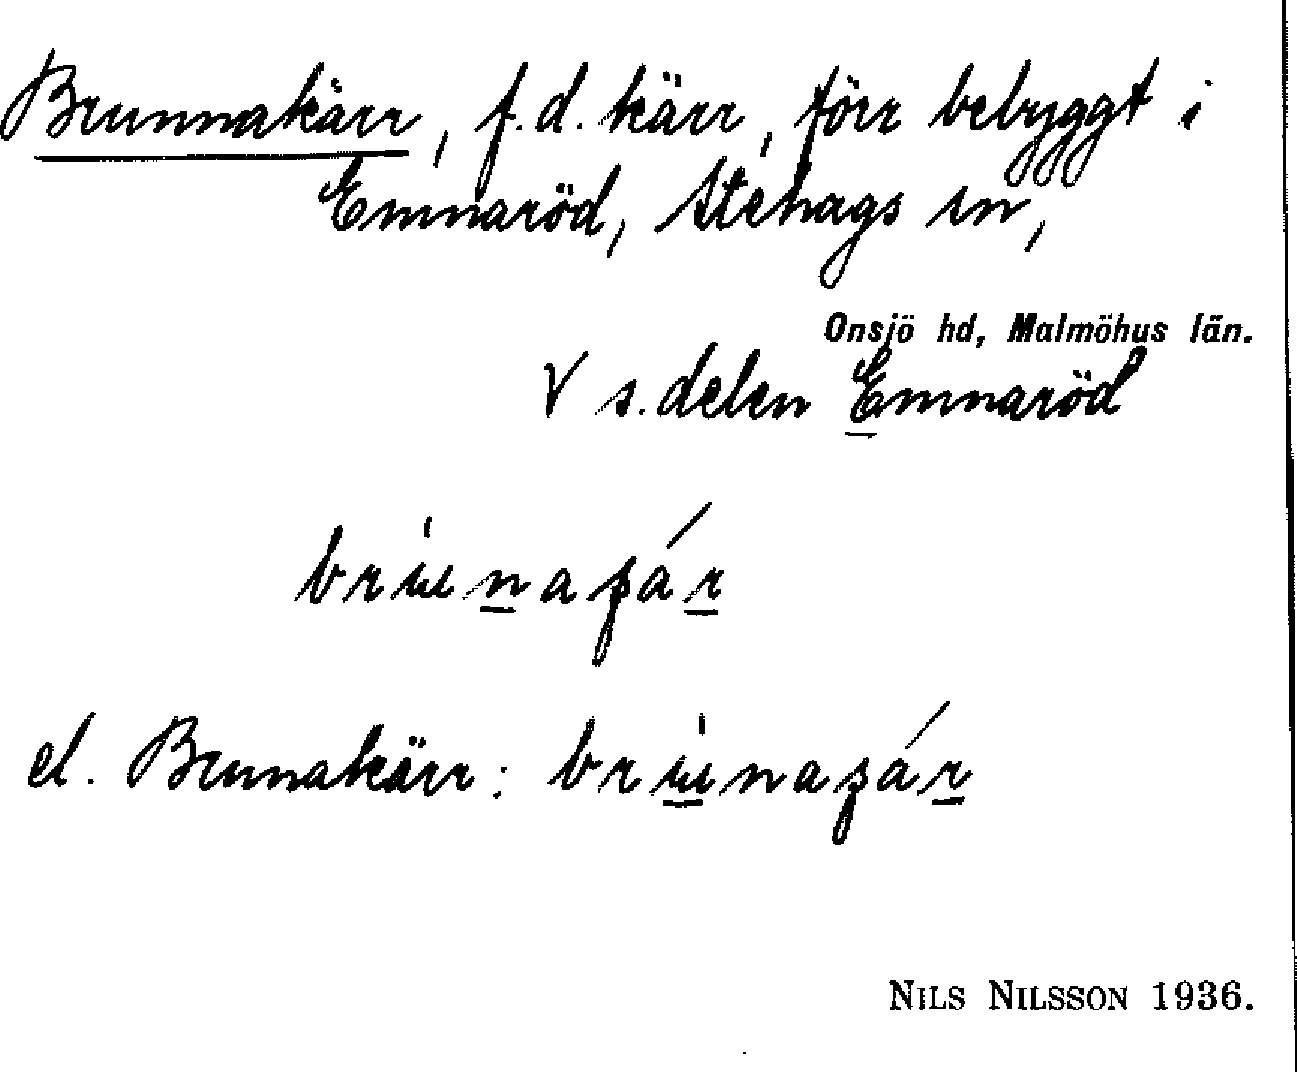 Brunnakärr, f.d. kärr, förr bebyggt i
Emmaröd, Stehags sn,
Onsjö hd, Malmöhus län.
V s. delen Emmaröd
el. Brunakärr:
NILS NILSSON 1936.